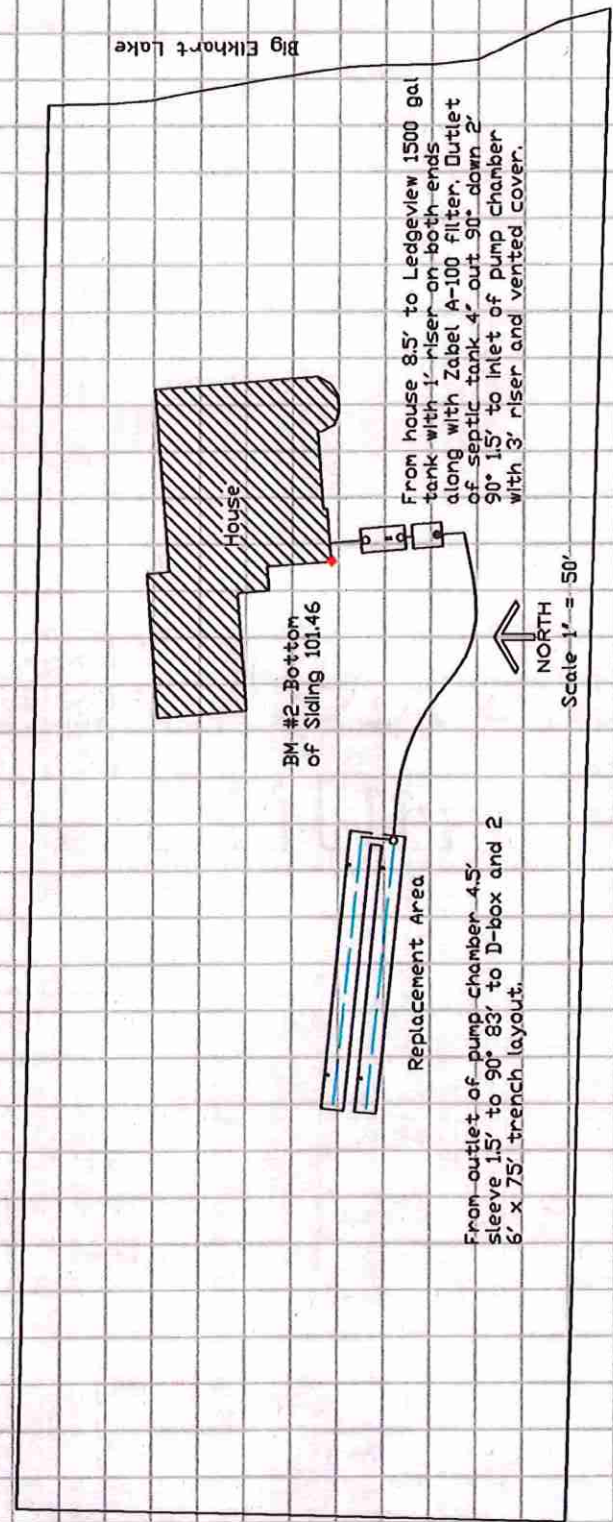 Big Elkhart Lake
House
BM #2 Bottom
of Siding 101.46
From house 8.5' to Ledgeview 1500 gal
tank with 1' riser on both ends
along with Zabel A-100 filter. Outlet
of septic tank 4" out 90° down 2'
90° 1.5' to inlet of pump chamber
with 3' riser and vented cover.
NORTH
Scale 1" = 50'
Replacement Area
From outlet of pump chamber 4.5'
sleeve 1.5' to 90° 83' to D-box and 2
6' x 75' trench layout.